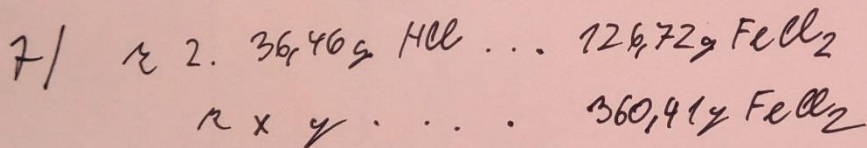 7/ z 2. 36,46g HCl ... 126,72g FeCl2
z x g .... 360,41g FeCl2